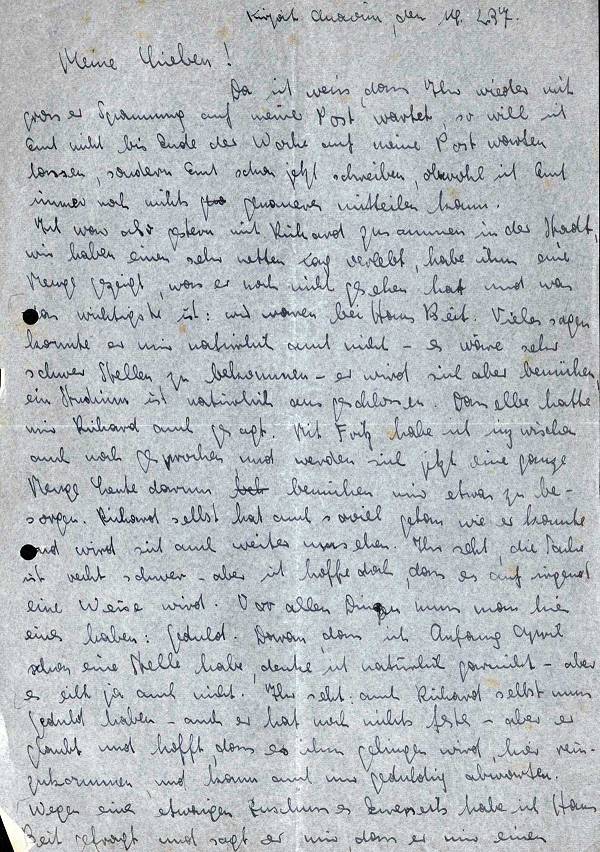 Kirjat Anavim, den 19. 2. 37.
Meine Lieben!
Da ich weiss, dass Ihr wieder mit
grosser Spannung auf meine Post wartet, so will ich
Euch nicht bis Ende der Woche auf meine Post warten
lassen, sondern Euch schon jetzt schreiben, obwohl ich Euch
immer noch nichts genaueres mitteilen kann.
Ich war also gestern mit Richard zusammen in der Stadt,
wir haben einen sehr netten Tag verlebt, habe ihm eine
Menge gezeigt, was er noch nicht gesehen hat und was
das wichtigste ist: wir waren bei Hans Beit. Vieles sagen
konnte er mir natürlich auch nicht - es wäre sehr
schwer Stellen zu bekommen - er wird sich aber bemühen
ein Studium ist natürlich ausgeschlossen. Dasselbe hatte
mir Richard auch gesagt. Mit Fritz habe ich inzwischen
auch noch gesprochen und werden sich jetzt eine ganze
Menge Leute darum bemühen mir etwas zu be-
sorgen. Richard selbst hat auch soviel getan wie er konnte
und wird sich auch weiter umsehen. Ihr seht, die Sache
ist recht schwer - aber ich hoffe doch, dass es auf irgend
eine Weise wird. Vor allen Dingen muss man hier
eines haben: Geduld. Daran, dass ich Anfang April
schon eine Stelle habe, denke ich natürlich garnicht - aber
es eilt ja auch nicht. Ihr seht: auch Richard selbst muss
Geduld haben - auch er hat noch nichts festes - aber er
glaubt und hofft, dass es ihm gelingen wird, hier rein-
zukommen und kann auch nur geduldig abwarten.
Wegen eines etwaigen Zuschusses Eurerseits habe ich Hans
Beit gefragt und sagt er mir, dass er mir einen